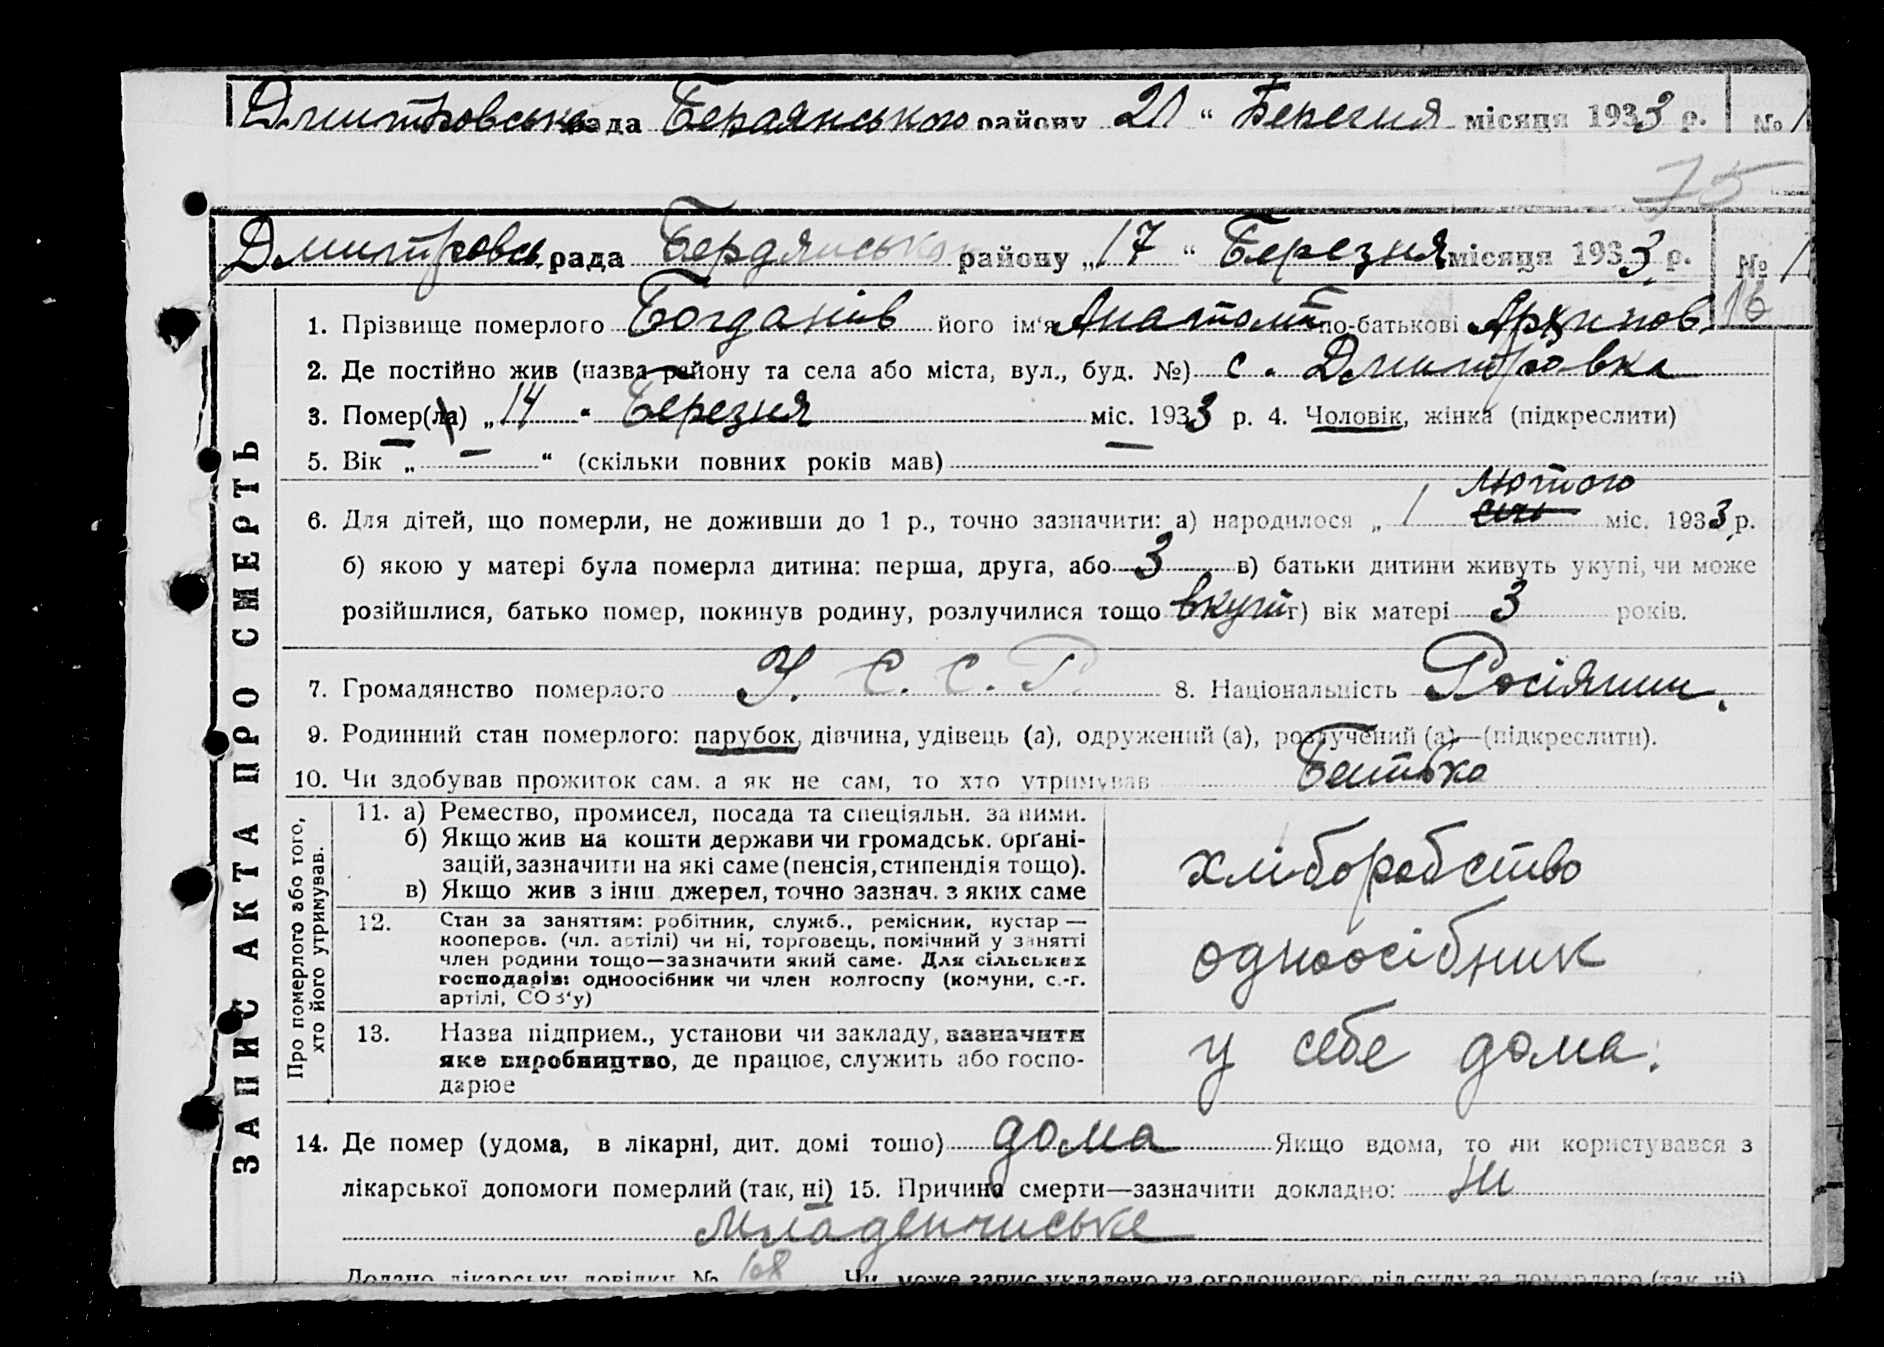 Дмитровська рада Бердянського району 20 " Березня місяця 1933 р. № 1
75
Дмитровсь рада Бердянсько району „17 " Березня місяця 1933 р. № 1
16
1. Прізвище померлого Богданів його ім'я Анатолій по-батькові Архипов
2. Де постійно жив (назва району та села або міста, вул., буд. №) с. Дмитровка
3. Помер(ла) „14 " Березня міс. 1933 р. 4. Чоловік, жінка (підкреслити)
5. Вік „ — " (скільки повних років мав) —
лютого
6. Для дітей, що померли, не доживши до 1 р., точно зазначити: а) народилося „ 1 січ міс. 1933 р.
б) якою у матері була померла дитина: перша, друга, або 3 в) батьки дитини живуть укупі, чи може
розійшлися, батько помер, покинув родину, розлучилися тощо вкупі г) вік матері 3 років.
7. Громадянство померлого У. С. С. Р. 8. Національність Росіянин.
9. Родинний стан померлого: парубок, дівчина, удівець (а), одружений (а), розлучений (а)—(підкреслити).
10. Чи здобував прожиток сам, а як не сам, то хто утримував Батько
ЗАПИС АКТА ПРО СМЕРТЬ
Про померлого або того,
хто його утримував.
11. а) Ремество, промисел, посада та спеціяльн. за ними.
б) Якщо жив на кошти держави чи громадськ. органі-
зацій, зазначити на які саме (пенсія, стипендія тощо).
в) Якщо жив з інш. джерел, точно зазнач. з яких саме
хліборобство
12. Стан за заняттям: робітник, служб., ремісник, кустар —
кооперов. (чл. артілі) чи ні, торговець, помічний у занятті
член родини тощо—зазначити який саме. Для сільських
господарів: одноосібник чи член колгоспу (комуни, с.-г.
артілі, СОЗ'у)
одноосібник
13. Назва підприєм., установи чи закладу, зазначити
яке виробництво, де працює, служить або госпо-
дарює
у себе дома.
14. Де помер (удома, в лікарні, дит. домі тощо) дома Якщо вдома, то чи користувався з
лікарської допомоги померлий (так, ні) 15. Причина смерти—зазначити докладно: Ні
Младенчиське
Додано лікарську довідку № 68 Чи може запис укладено на оголошеного від суду за померлого (так, ні)